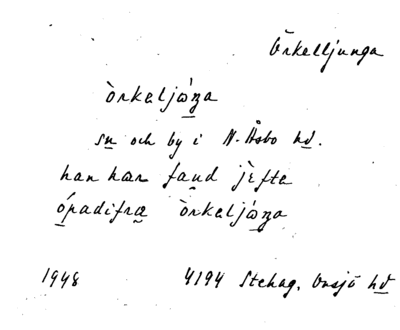 Örkelljunga
òrkəljὼŋa
sn och by i N. Åsbo hd.
han hær faud jèftə
ópadifræ òrkəljὼŋa
1948 4194 Stehag, Onsjö hd